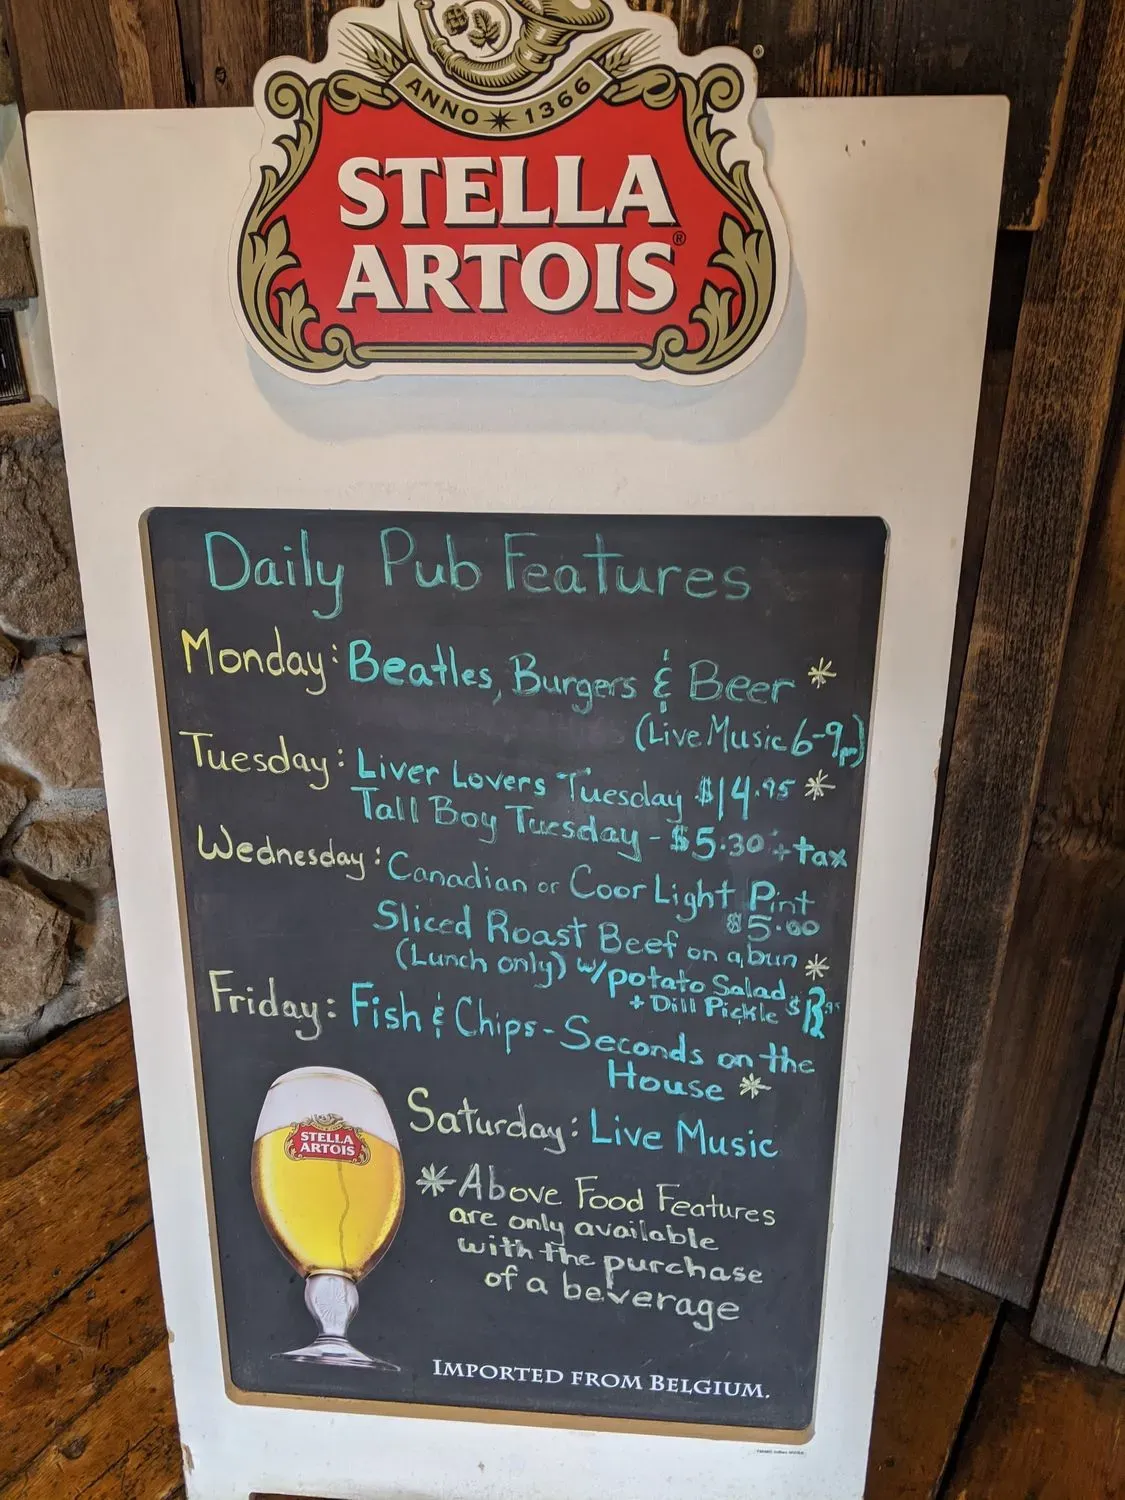 ANNO ✴ 1366
STELLA
ARTOIS®
Daily Pub Features
Monday: Beatles, Burgers & Beer *
(Live Music 6-9pm)
Tuesday: Liver Lovers Tuesday $14.95 *
Tall Boy Tuesday - $5.30 + tax
Wednesday: Canadian or Coor Light Pint
$5.00
Sliced Roast Beef on a bun *
(Lunch only) w/potato Salad
+ Dill Pickle
Friday: Fish & Chips - Seconds on the
House *
STELLA
ARTOIS
Saturday: Live Music
* Above Food Features
are only available
with the purchase
of a beverage
IMPORTED FROM BELGIUM.